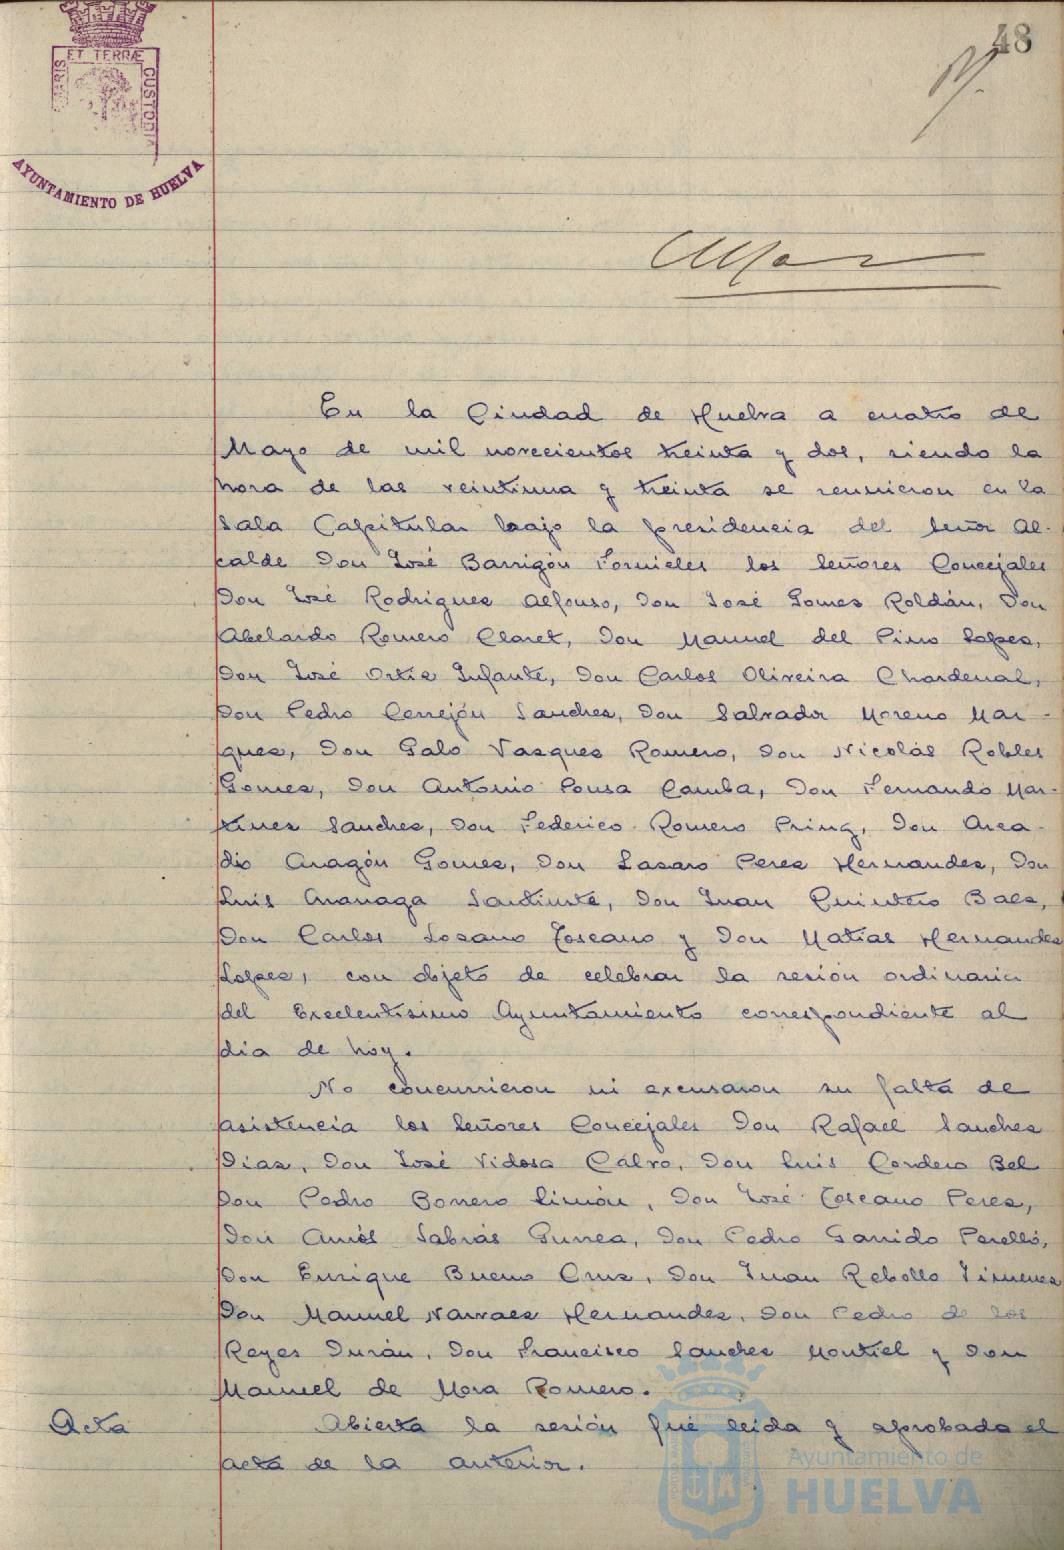 48
ET TERRÆ
MARIS
CUSTODIA
AYUNTAMIENTO DE HUELVA
En la Ciudad de Huelva a cuatro de
Mayo de mil novecientos treinta y dos, siendo la
hora de las veintiuna y treinta se reunieron en la
Sala Capitular bajo la presidencia del Señor Al-
calde Don José Barrigón Fornieles los Señores Concejales
Don José Rodrigues Alfonso, Don José Gomes Roldán, Don
Abelardo Romero Claret, Don Manuel del Pino Lopes,
Don José Ortiz Infante, Don Carlos Oliveira Chardenal,
Don Pedro Cerrejón Sanches, Don Salvador Moreno Mar-
ques, Don Galo Vasques Romero, Don Nicolás Robles
Gomes, Don Antonio Pousa Camba, Don Fernando Mar-
tines Sanches, Don Federico Romero Pring, Don Arca-
dio Aragón Gomes, Don Lasaro Peres Hernandes, Don
Luis Ananaga, Don Juan Quintero Baes,
Don Carlos Losano Toscano y Don Matias Hernandes
Lopes, con objeto de celebrar la sesión ordinaria
del Excelentisimo Ayuntamiento correspondiente al
dia de hoy.
No concurrieron ni excusaron su falta de
asistencia los Señores Concejales Don Rafael Sanches
Dias, Don José Vidosa Calvo, Don Luis Cordero Bel
Don Pedro Borrero Limón, Don José Toscano Peres,
Don Amós Sabrás Gurrea, Don Pedro Garrido Perelló,
Don Enrique Bueno Crus, Don Juan Rebollo Jimenes
Don Manuel Narvaes Hernandes, Don Pedro de los
Reyes Durán, Don Francisco Sanches Montiel y Don
Manuel de Mora Romero.
Acta Abierta la sesión fué leida y aprobada el
acta de la anterior.
Ayuntamiento de
HUELVA